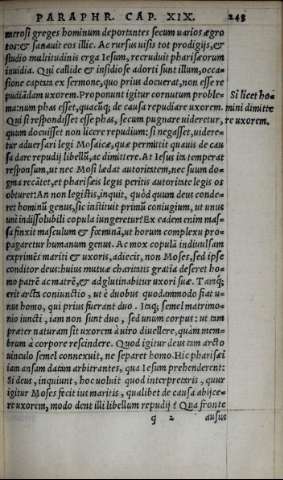 PARAPHR. CAP. XIX. 245
merosi greges hominum deportantes secum uarios ægro
tos: & sanauit eos illic. Ac rursus uisis tot prodigijs, &
studio multitudinis erga Iesum, recruduit pharisæorum
inuidia. Qui callide & insidiose adorti sunt illum, occa=
sione captata ex sermone, quo prius docuerat, non esse re
pudiādam uxorem. Proponunt igitur cornutum proble=
ma: num phas esset, quacūq; de causa repudiare uxorem.
Qui si respondisset esse phas, secum pugnare uideretur,
quum docuisset non licere repudium: si negasset, uidere=
tur aduersari legi Mosaicæ, quæ permittit quauis de cau
sa dare repudij libellū, ac dimittere. At Iesus ita temperat
responsum, ut nec Mosi lædat autoritatem, nec suum do=
gma recātet, et pharisæis legis peritis autoritate legis os
obturet: An non legistis, inquit, quòd quum deus conde=
ret hominū genus, sic instituit primū coniugium, ut unus
uni indissolubili copula iungeretur? Ex eadem enim mas=
sa finxit masculum & fœminā, ut horum complexu pro=
pagaretur humanum genus. Ac mox copulā indiuulsam
exprimēs mariti & uxoris, adiecis, non Moses, sed ipse
conditor deus: huius mutuæ charitatis gratia deseret ho=
mo patrē ac matrē, & adglutinabitur uxori suæ. Tanq;
erit arcta coniunctio, ut è duobus quodammodo fiat u=
nus homo, qui prius fuerant duo. Itaq; semel matrimo=
nio iuncti, iam non sunt duo, sed unum corpus: ut tam
præter naturam sit uxorem à uiro diuellere, quàm mem=
brum à corpore rescindere. Quod igitur deus tam arcto
uinculo semel connexuit, ne separet homo. Hic pharisæi
iam ansam datam arbitrantes, qua Iesum prehenderent:
Si deus, inquiunt, hoc uoluit quod interpretaris, quur
igitur Moses fecit ius maritis, qualibet de causa abijce=
re uxorem, modo dent illi libellum repudij? Qua fronte
q 2 ausus
Si licet ho=
mini dimitte
re uxorem.